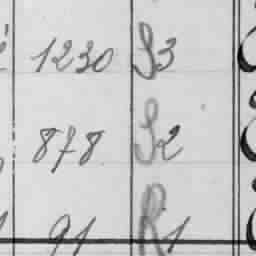 1230 S3
878 S2
91 R1